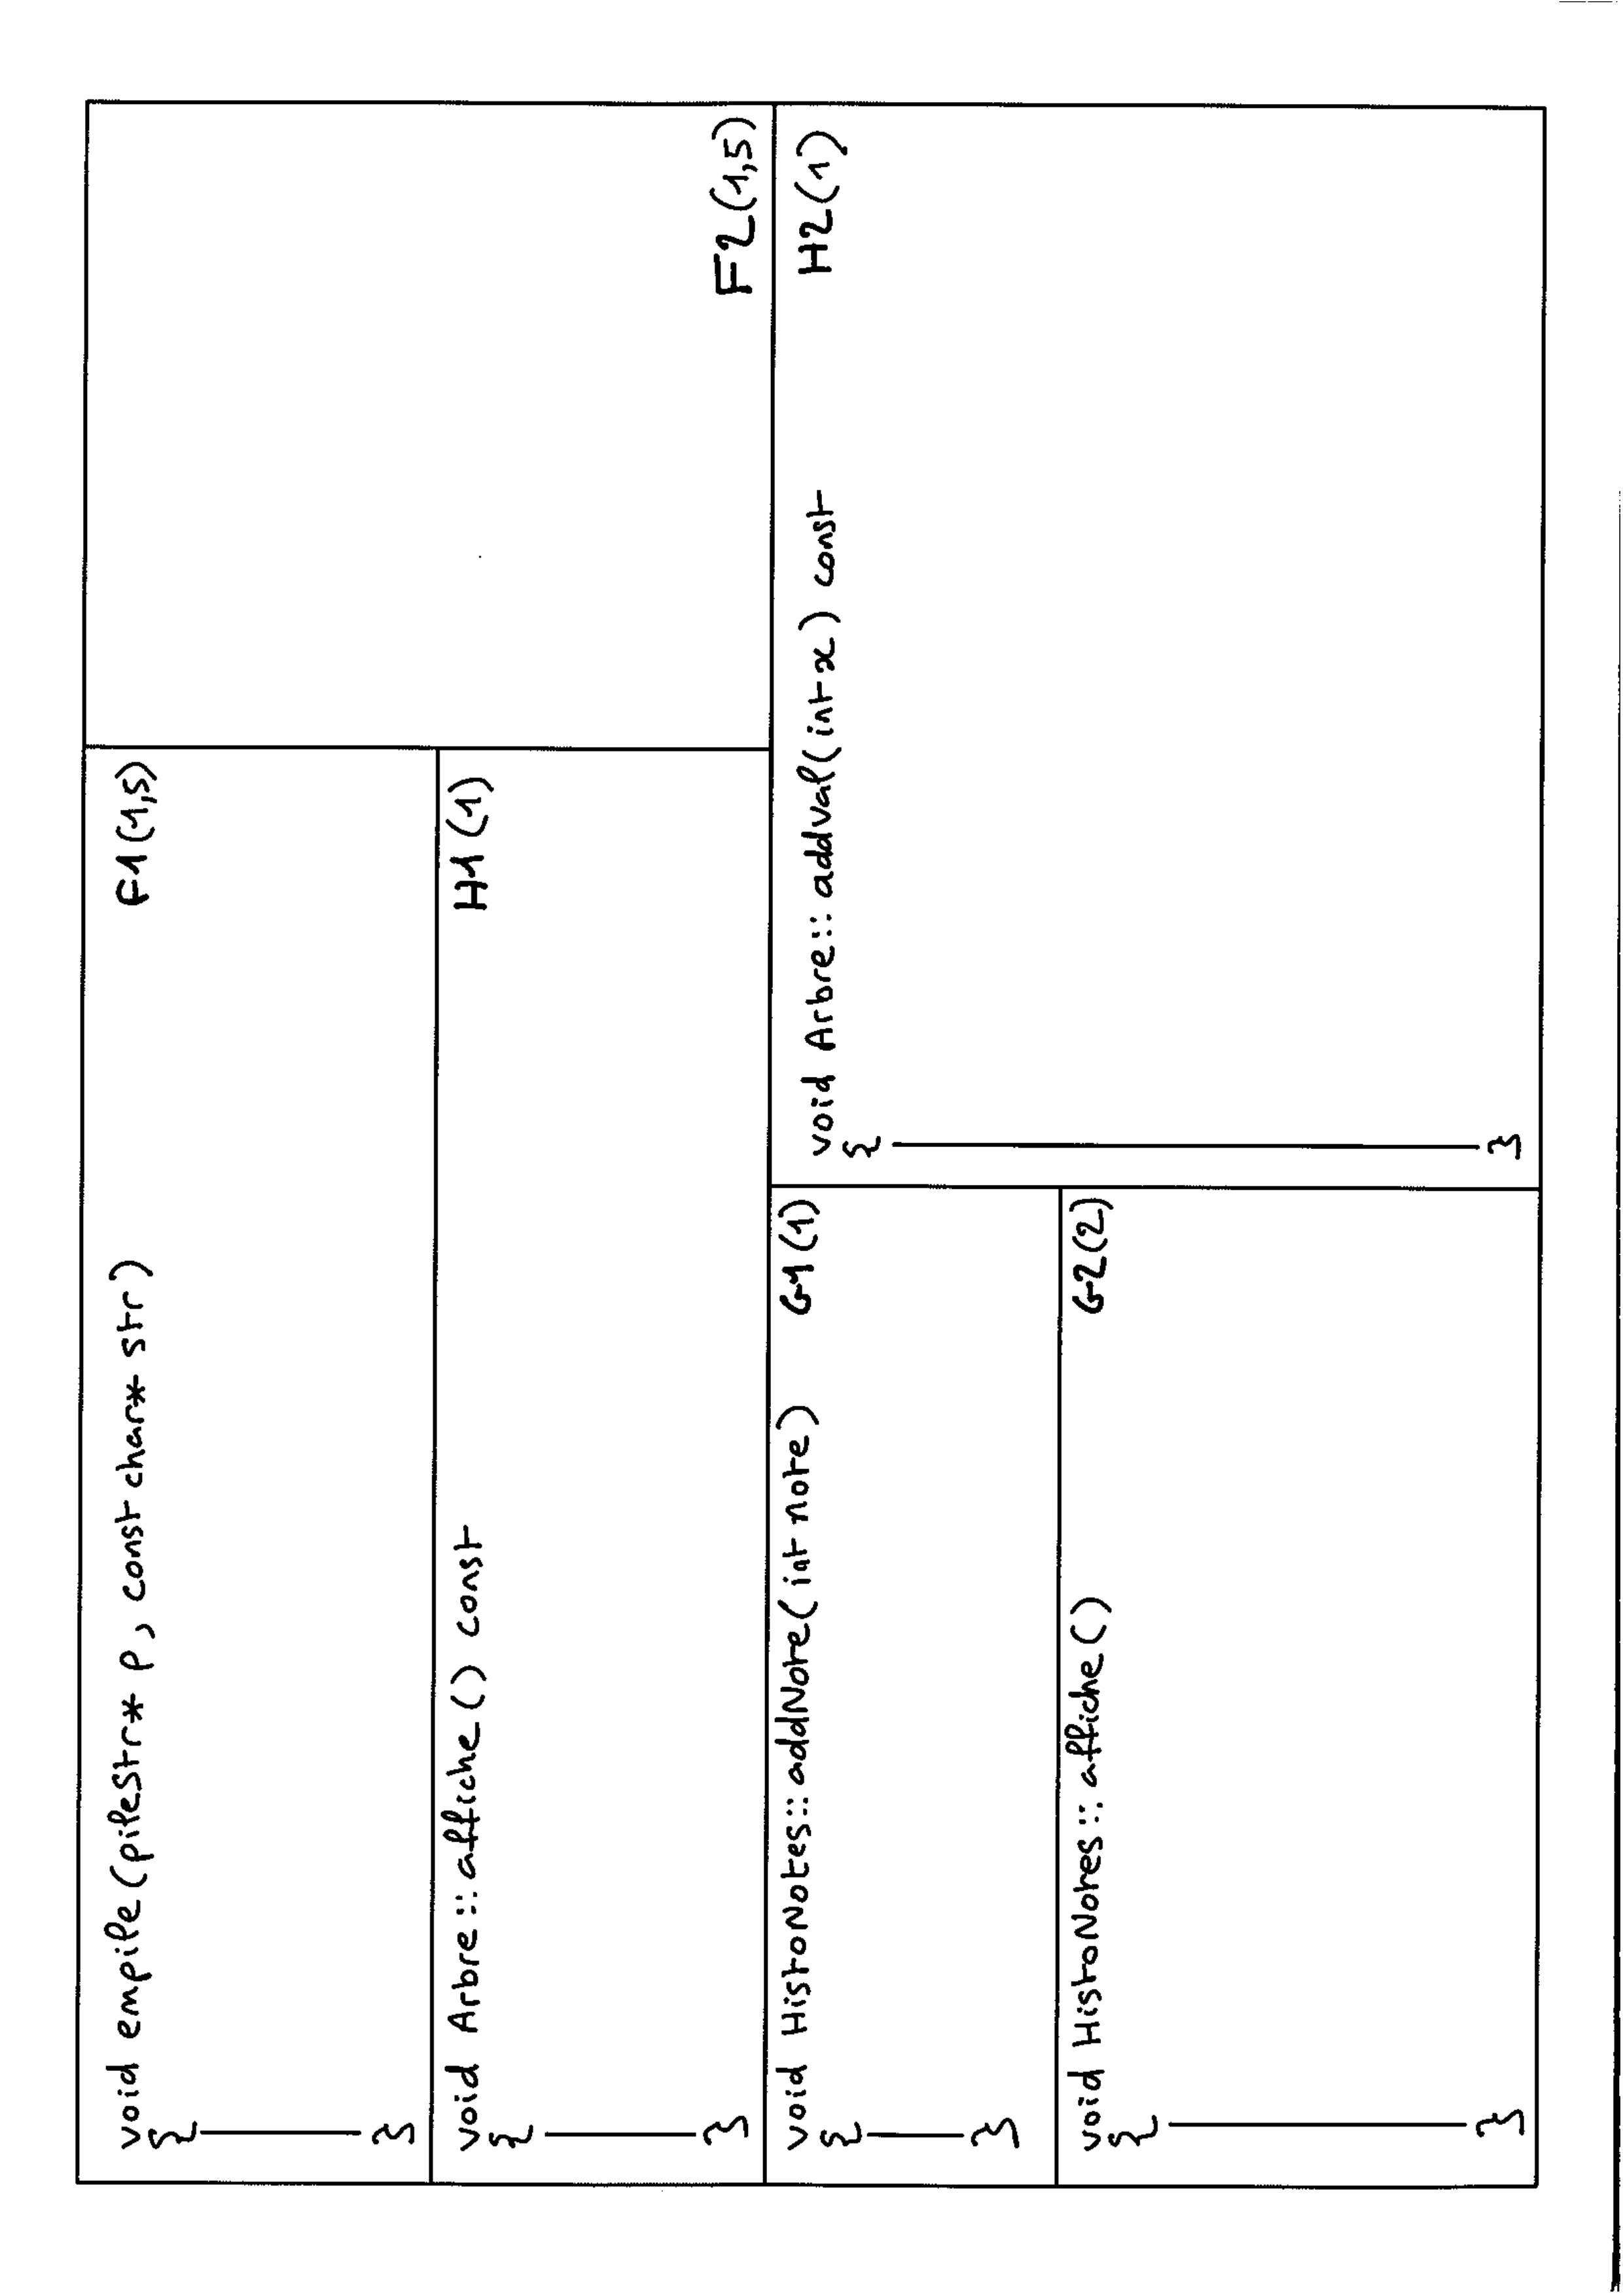 void empile(pileStr* p, const char* str) F1(1,5)
{
}
F2(1,5)
void Arbre::affiche() const H1(1)
{
}
void HistoNotes::addNote(int note) G1(1)
{
}
void HistoNotes::affiche() G2(2)
{
}
void Arbre::addval(int x) const H2(1)
{
}